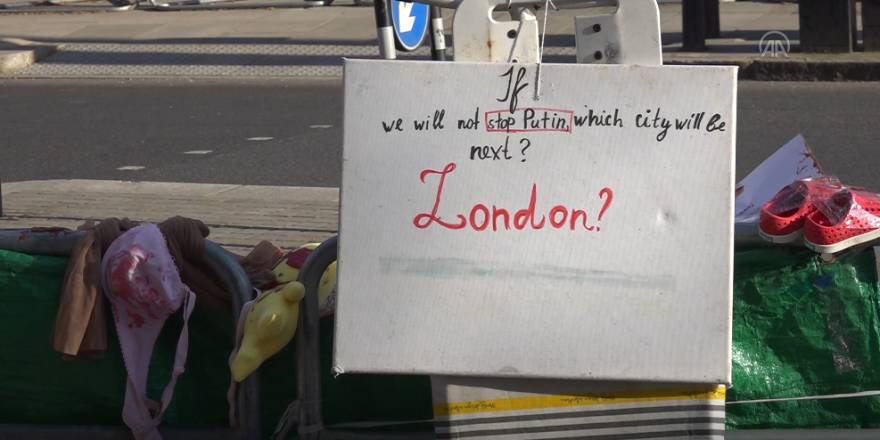 AA
If
we will not stop Putin, which city will be
next?
London?